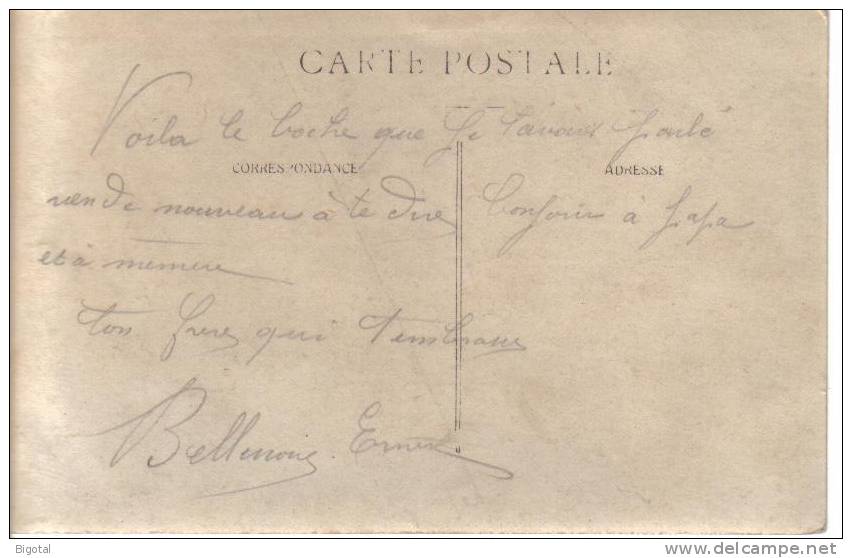 CARTE POSTALE
Voila le boche que je tavais parlé
CORRESPONDANCE
ADRESSE
rien de nouveau à te dire bonjour à papa
et à mémère
ton frere qui t'embrasse
Ernest
Bigotal
delcampe.net